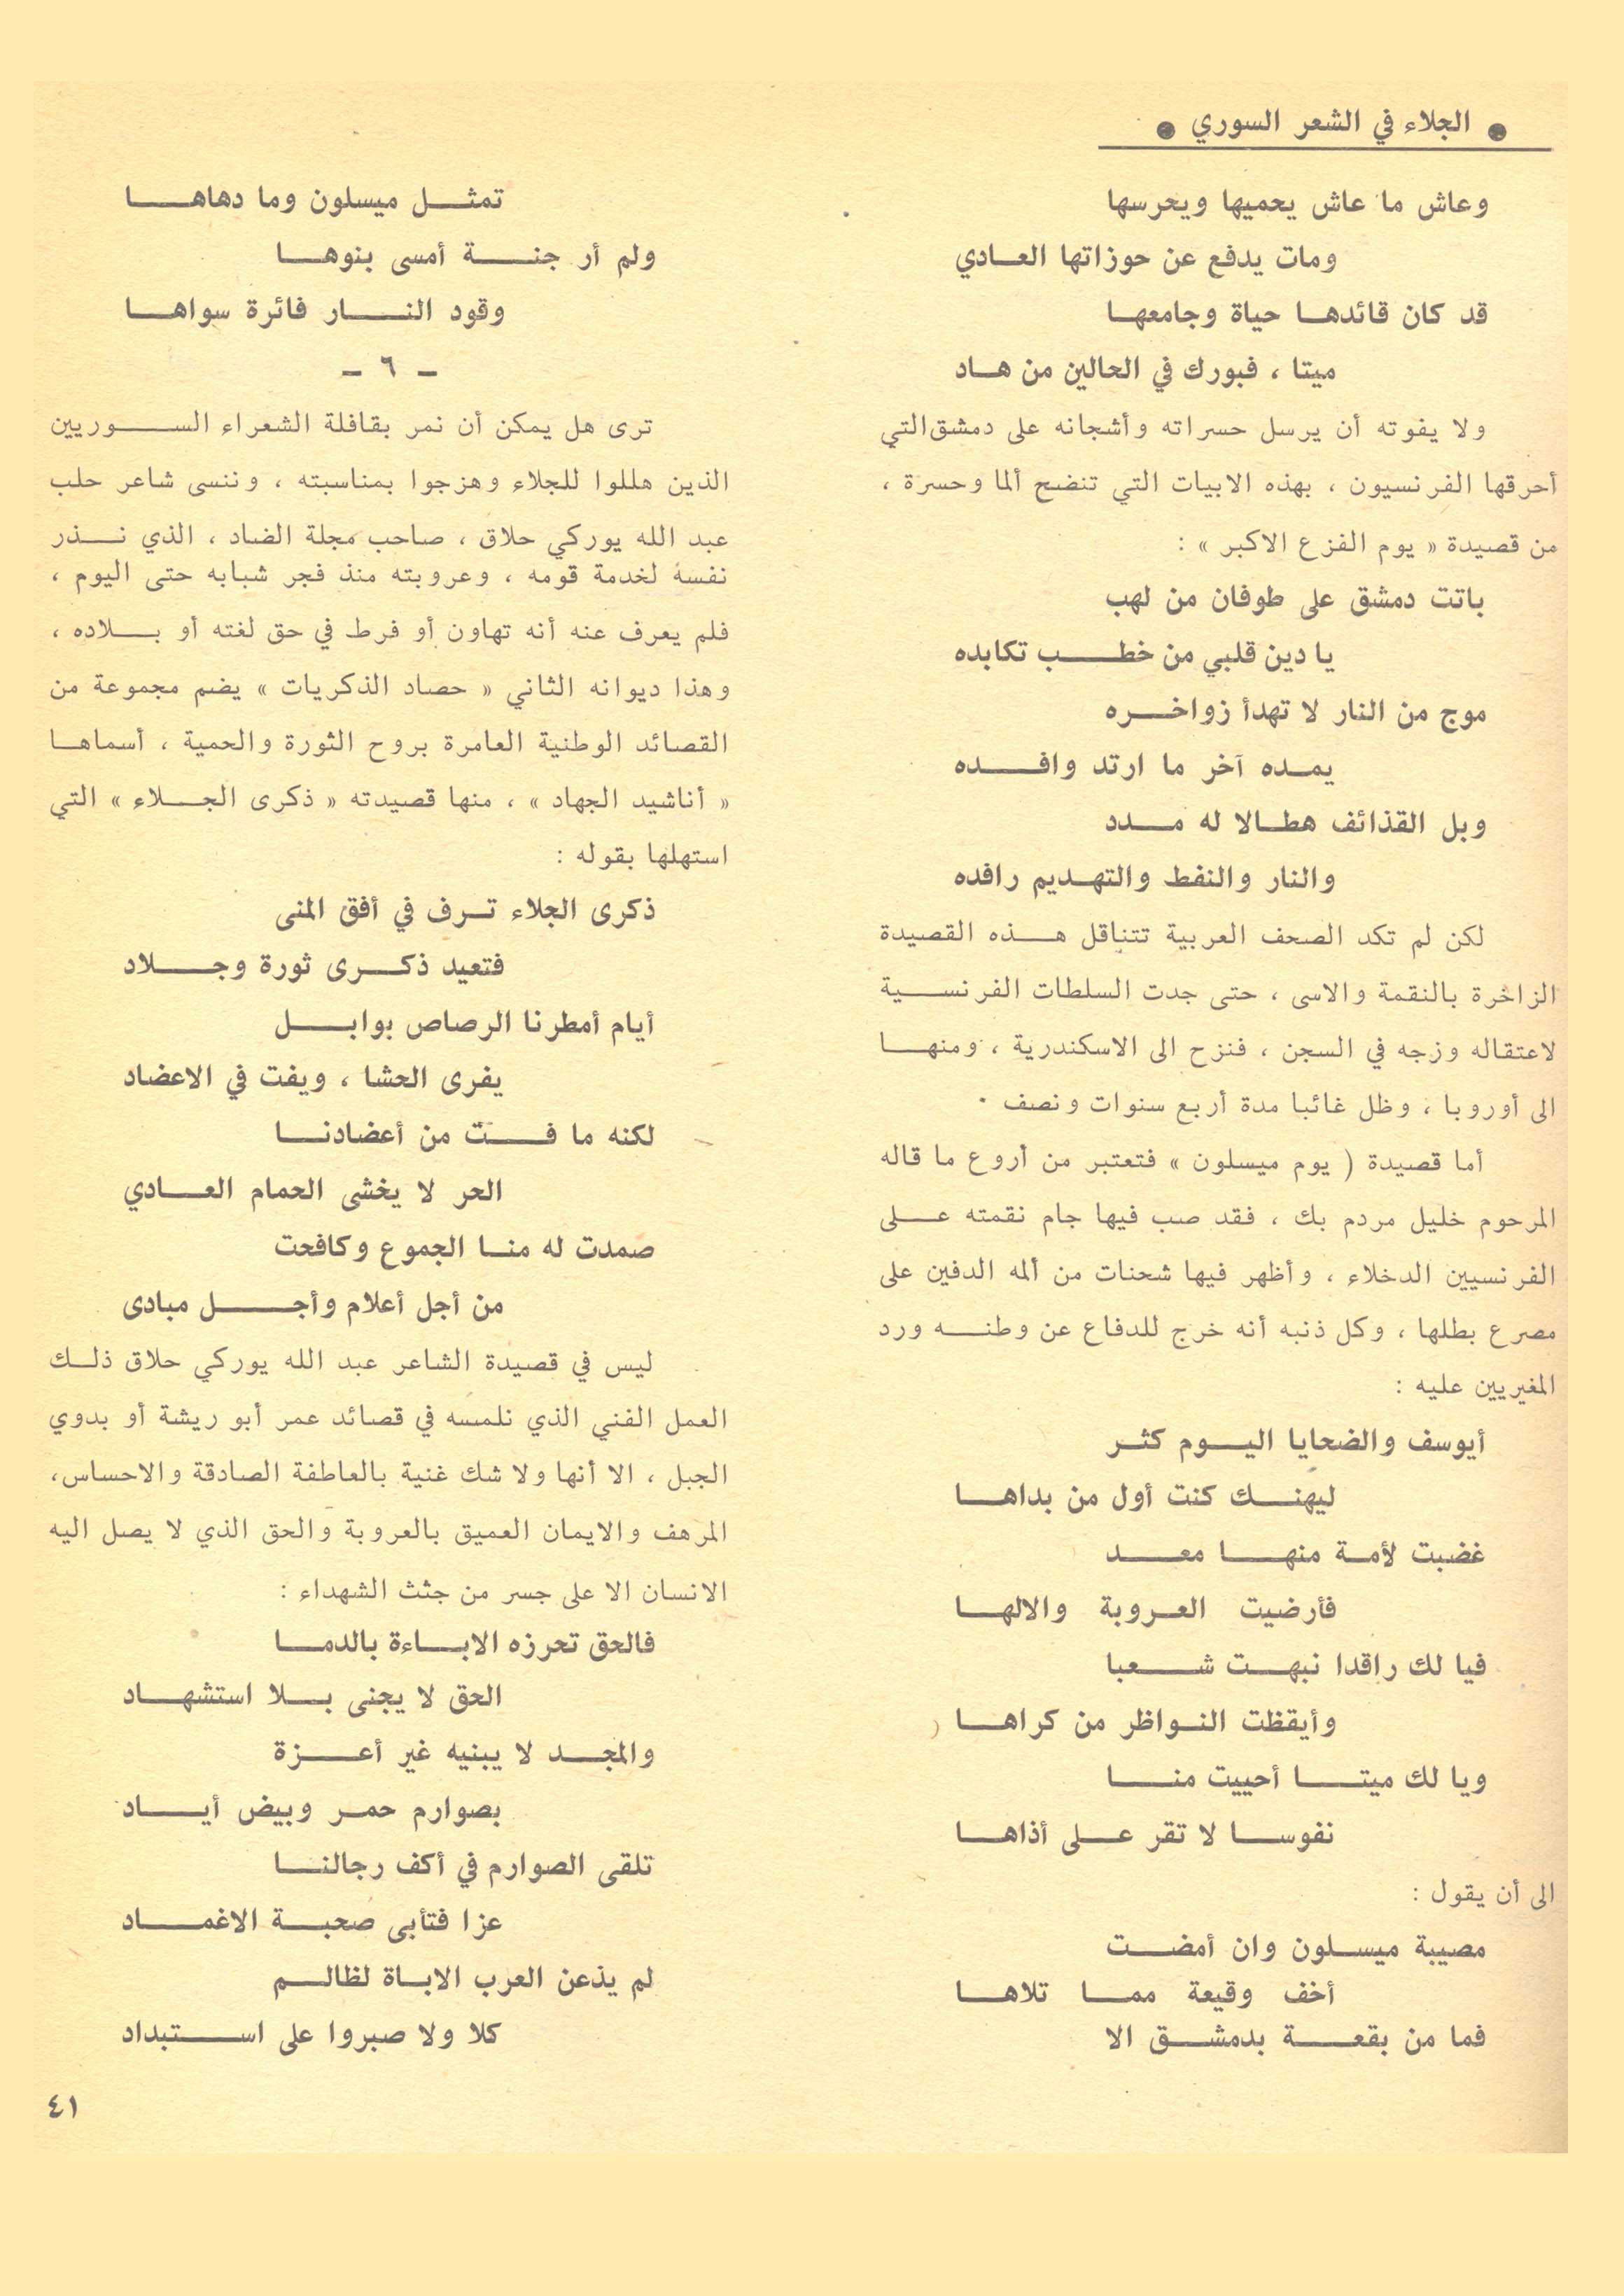 ● الجلاء في الشعر السوري ●
وعاش ما عاش يحميها ويحرسها
ومات يدفع عن حوزاتها العادي
قد كان قائدها حياة وجامعها
ميتا ، فبورك في الحالين من هاد
ولا يفوته أن يرسل حسراته وأشجانه على دمشق التي
أحرقها الفرنسيون ، بهذه الابيات التي تنضح ألما وحسرة ،
من قصيدة « يوم الفزع الاكبر » :
باتت دمشق على طوفان من لهب
يا دين قلبي من خطب تكابده
موج من النار لا تهدأ زواخره
يمده آخر ما ارتد وافده
وبل القذائف هطالا له مدد
والنار والنفط والتهديم رافده
لكن لم تكد الصحف العربية تتناقل هذه القصيدة
الزاخرة بالنقمة والاسى ، حتى جدت السلطات الفرنسية
لاعتقاله وزجه في السجن ، فنزح الى الاسكندرية ، ومنها
الى أوروبا ، وظل غائبا مدة أربع سنوات ونصف .
أما قصيدة ( يوم ميسلون » فتعتبر من أروع ما قاله
المرحوم خليل مردم بك ، فقد صب فيها جام نقمته على
الفرنسيين الدخلاء ، وأظهر فيها شحنات من ألمه الدفين على
مصرع بطلها ، وكل ذنبه أنه خرج للدفاع عن وطنه ورد
المغيريين عليه :
أيوسف والضحايا اليوم كثر
ليهنك كنت أول من بداها
غضبت لأمة منها معد
فأرضيت العروبة والالها
فيا لك راقدا نبهت شعبا
وأيقظت النواظر من كراها
ويا لك ميتا أحييت منا
نفوسا لا تقر على أذاها
الى أن يقول :
مصيبة ميسلون وان أمضت
أخف وقيعة مما تلاها
فما من بقعة بدمشق الا
تمثل ميسلون وما دهاها
ولم أر جنة أمسى بنوها
وقود النار فائرة سواها
– ٦ –
ترى هل يمكن أن نمر بقافلة الشعراء السوريين
الذين هللوا للجلاء وهزجوا بمناسبته ، وننسى شاعر حلب
عبد الله يوركي حلاق ، صاحب مجلة الضاد ، الذي نذر
نفسه لخدمة قومه ، وعروبته منذ فجر شبابه حتى اليوم ،
فلم يعرف عنه أنه تهاون أو فرط في حق لغته أو بلاده ،
وهذا ديوانه الثاني « حصاد الذكريات » يضم مجموعة من
القصائد الوطنية العامرة بروح الثورة والحمية ، أسماها
« أناشيد الجهاد » ، منها قصيدته « ذكرى الجلاء » التي
استهلها بقوله :
ذكرى الجلاء ترف في أفق المنى
فتعيد ذكرى ثورة وجلاد
أيام أمطرنا الرصاص بوابل
يفرى الحشا ، ويفت في الاعضاد
لكنه ما فت من أعضادنا
الحر لا يخشى الحمام العادي
صمدت له منا الجموع وكافحت
من أجل أعلام وأجل مبادى
ليس في قصيدة الشاعر عبد الله يوركي حلاق ذلك
العمل الفني الذي نلمسه في قصائد عمر أبو ريشة أو بدوي
الجبل ، الا أنها ولا شك غنية بالعاطفة الصادقة والاحساس،
المرهف والايمان العميق بالعروبة والحق الذي لا يصل اليه
الانسان الا على جسر من جثث الشهداء :
فالحق تحرزه الاباءة بالدما
الحق لا يجنى بلا استشهاد
والمجد لا يبنيه غير أعزة
بصوارم حمر وبيض أياد
تلقى الصوارم في أكف رجالنا
عزا فتأبى صحبة الاغماد
لم يذعن العرب الاباة لظالم
كلا ولا صبروا على استبداد
٤١